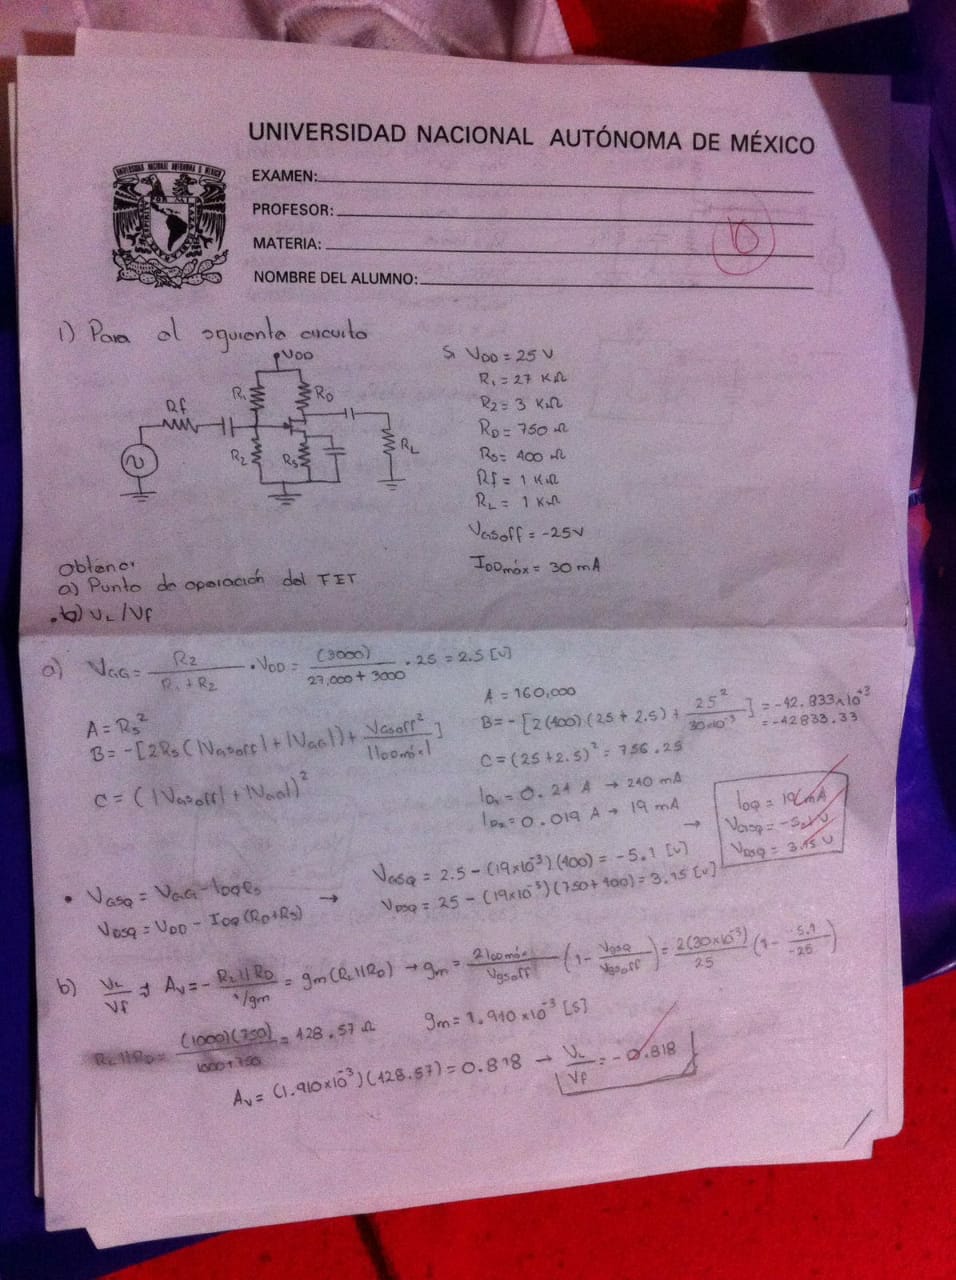 UNIVERSIDAD NACIONAL AUTÓNOMA DE MÉXICO
EXAMEN:
PROFESOR:
MATERIA:
NOMBRE DEL ALUMNO:
1) Para el siguiente circuito
VDD
R1
RD
Rf
R2
RS
RL
Si VDD = 25 V
R1 = 27 KΩ
R2 = 3 KΩ
RD = 750 Ω
RS = 400 Ω
Rf = 1 KΩ
RL = 1 KΩ
VGSoff = -25V
IDDmáx = 30 mA
Obtener
a) Punto de operación del FET
b) VL/Vf
a) VGG = R2/(R1+R2) · VDD = (3000)/(27,000+3000) · 25 = 2.5 [V]
A = RS²
B = -[2RS(|VGSoff|+|VGG|) + VGSoff²/|IDDmáx|]
C = (|VGSoff|+|VGG|)²
A = 160,000
B = -[2(400)(25+2.5) + 25²/30x10⁻³] = -42.833x10⁺³
= -42833.33
C = (25+2.5)² = 756.25
ID1 = 0.24 A → 240 mA
ID2 = 0.019 A → 19 mA
→
IDQ = 19 mA
VGSQ = -5.1 V
VDSQ = 3.15 V
• VGSQ = VGG - IDQRS
VDSQ = VDD - IDQ(RD+RS)
→ VGSQ = 2.5 - (19x10⁻³)(400) = -5.1 [V]
VDSQ = 25 - (19x10⁻³)(750+400) = 3.15 [V]
b) VL/Vf → AV = - RL||RD / 1/gm = gm(RL||RD) → gm = 2IDDmáx/VGSoff (1 - VGSQ/VGSoff) = 2(30x10⁻³)/25 (1 - -5.1/-25)
RL||RD = (1000)(750)/1000+750 = 428.57 Ω
gm = 1.910x10⁻³ [S]
AV = (1.910x10⁻³)(428.57) = 0.818 → VL/Vf = -0.818